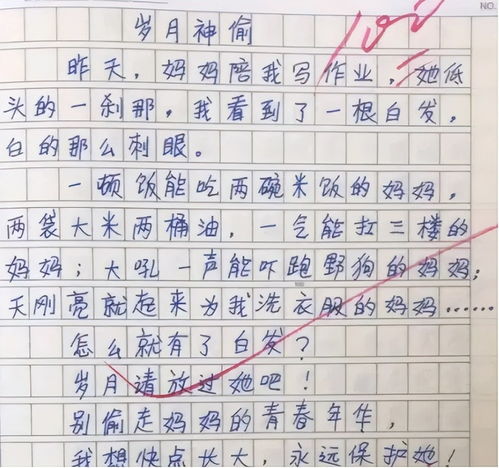 NO.
100
岁月神偷
昨天，妈妈陪我写作业，她低
头的一刹那，我看到了一根白发，
白的那么刺眼。
一顿饭能吃两碗米饭的妈妈，
两袋大米两桶油，一气能扛三楼的
妈妈；大吼一声能吓跑野狗的妈妈；
天刚亮就起来为我洗衣服的妈妈……
怎么就有了白发？
岁月请放过她吧！
别偷走妈妈的青春年华，
我想快点长大，永远保护她！